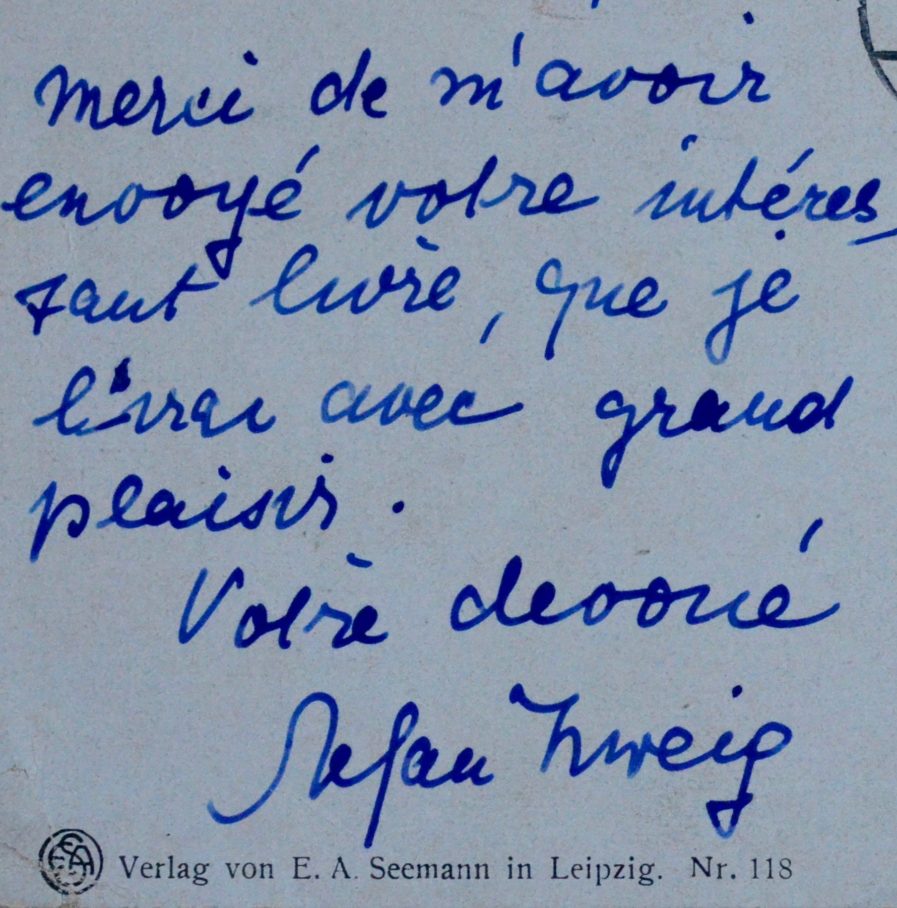 merci de m'avoir
envoyé votre intéres-
sant livre, que je
lirai avec grand
plaisir.
Votre devoué
Stefan Zweig
Verlag von E. A. Seemann in Leipzig. Nr. 118